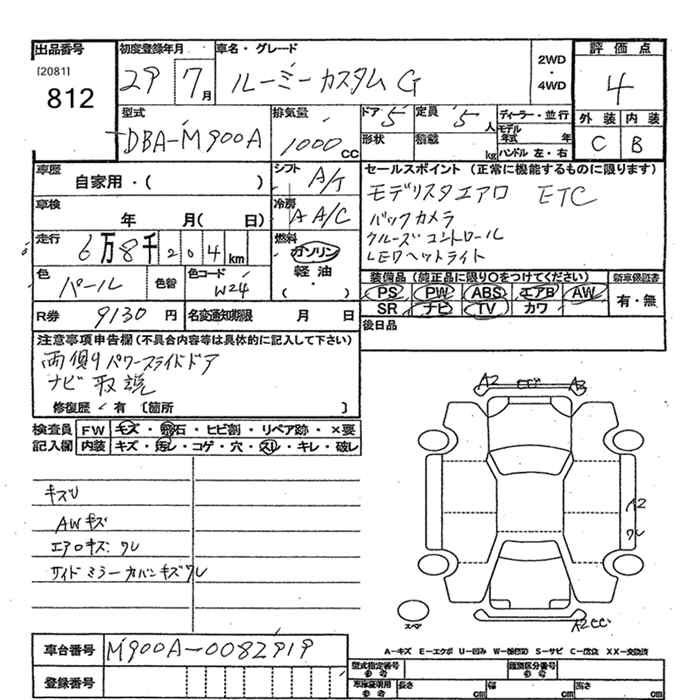 出品番号
[2081]
812
初度登録年月
29 7月
車名・グレード
ルーミーカスタム G
2WD
・
4WD
評価点
4
外装 内装
C B
型式
DBA-M900A
排気量
1000 cc
ドア 5
定員 5人
形状
積載 kg
ディーラー・並行
モデル年式 年
ハンドル 左・右
車歴
自家用・( )
シフト A/T
車検
年 月( 日)
冷房 A A/C
走行
6万8千204km
燃料
ガソリン
軽油
・( )
色
パール
色替
色コード
W24
R券 9130 円
名変通知期限 月 日
セールスポイント (正常に機能するものに限ります)
モデリスタエアロ ETC
バックカメラ
クルーズコントロール
LEDヘットライト
装備品 (純正品に限り○をつけてください)
PS PW ABS エアB AW
SR ナビ TV カワ
新車保証書
有・無
後日品
注意事項申告欄 (不具合内容等は具体的に記入して下さい)
両側りパワースライドドア
ナビ取説
修復歴 有 [箇所 ]
検査員 FW キズ・飛石・ヒビ割・リペア跡・×要
記入欄 内装 キズ・汚レ・コゲ・穴・スレ・キレ・破レ
キズU
AWキズ
エアロキズ ワレ
サイドミラーカバーキズワレ
A2 CC A3
A2
ワレ
スペア
A2 CC
A-キズ E-エクボ U-凹み W-補修跡 S-サビ C-腐食 XX-交換済
車台番号 M900A-0082919
登録番号
型式指定番号 参考
類別区分番号 参考
車庫証明用 参考 長さ cm 幅 cm 高さ cm